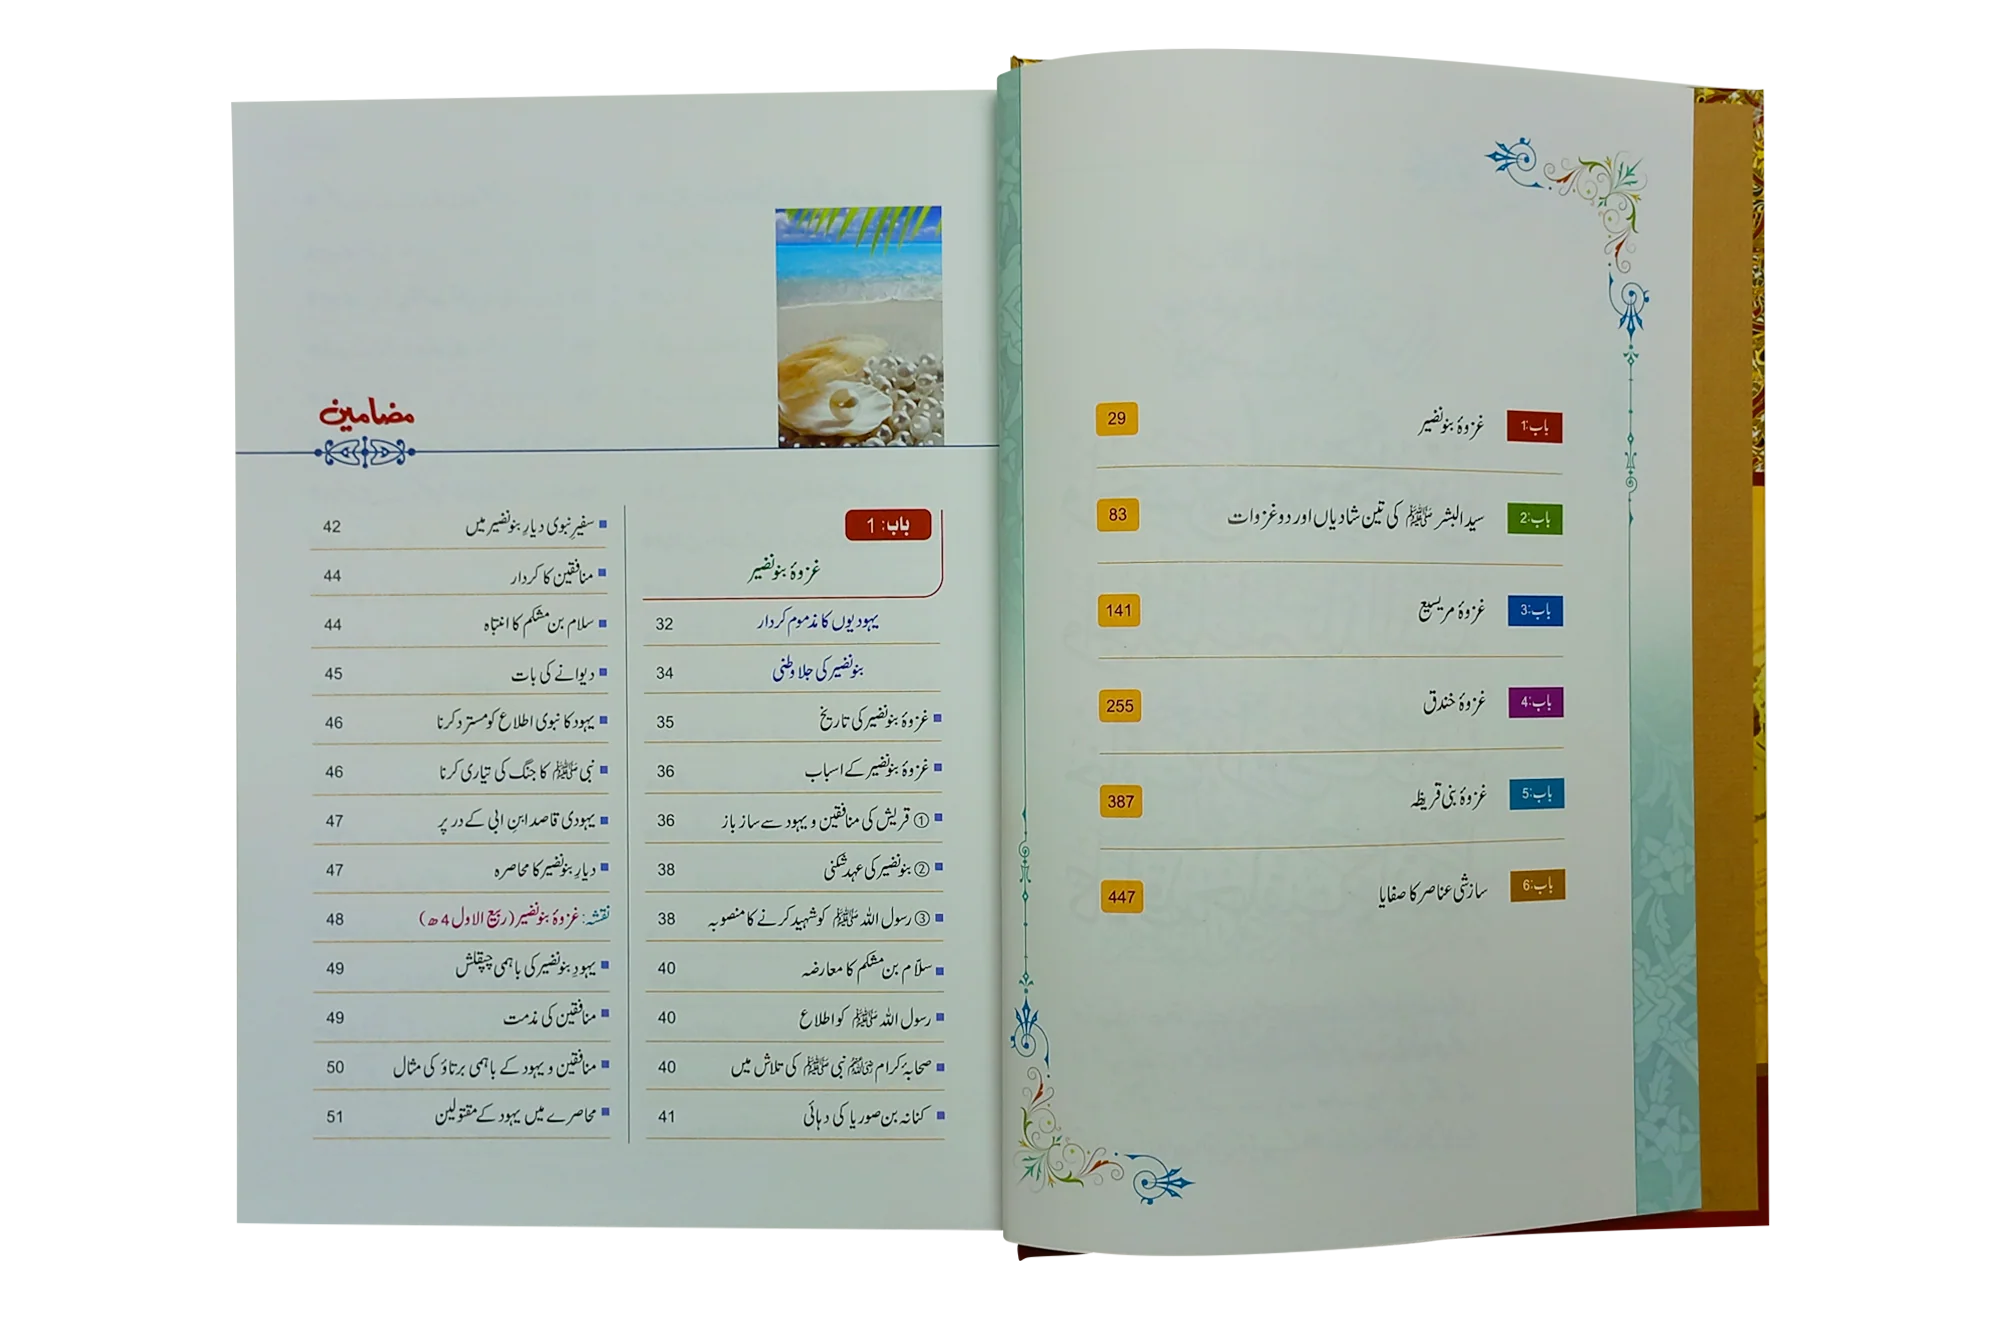 باب:1 غزوۂ بنو نضیر 29
باب:2 سید البشر ﷺ کی تین شادیاں اور دو غزوات 83
باب:3 غزوۂ مریسیع 141
باب:4 غزوۂ خندق 255
باب:5 غزوۂ بنی قریظہ 387
باب:6 سازشی عناصر کا صفایا 447
مضامین
باب: 1
غزوۂ بنو نضیر
یہودیوں کا مذموم کردار 32
بنو نضیر کی جلا وطنی 34
غزوۂ بنو نضیر کی تاریخ 35
غزوۂ بنو نضیر کے اسباب 36
① قریش کی منافقین و یہود سے ساز باز 36
② بنو نضیر کی عہد شکنی 38
③ رسول اللہ ﷺ کو شہید کرنے کا منصوبہ 38
سلّام بن مشکم کا معارضہ 40
رسول اللہ ﷺ کو اطلاع 40
صحابۂ کرام رضی اللہ عنہم نبی ﷺ کی تلاش میں 40
کنانہ بن صوریا کی دہائی 41
سفیرِ نبوی دیارِ بنو نضیر میں 42
منافقین کا کردار 44
سلام بن مشکم کا انتباہ 44
دیوانے کی بات 45
یہود کا نبوی اطلاع کو مسترد کرنا 46
نبی ﷺ کا جنگ کی تیاری کرنا 46
یہودی قاصد ابنِ ابی کے در پر 47
دیارِ بنو نضیر کا محاصرہ 47
نقشہ: غزوۂ بنو نضیر (ربیع الاول 4ھ) 48
یہودِ بنو نضیر کی باہمی چپقلش 49
منافقین کی مذمت 49
منافقین و یہود کے باہمی برتاؤ کی مثال 50
محاصرے میں یہود کے مقتولین 51